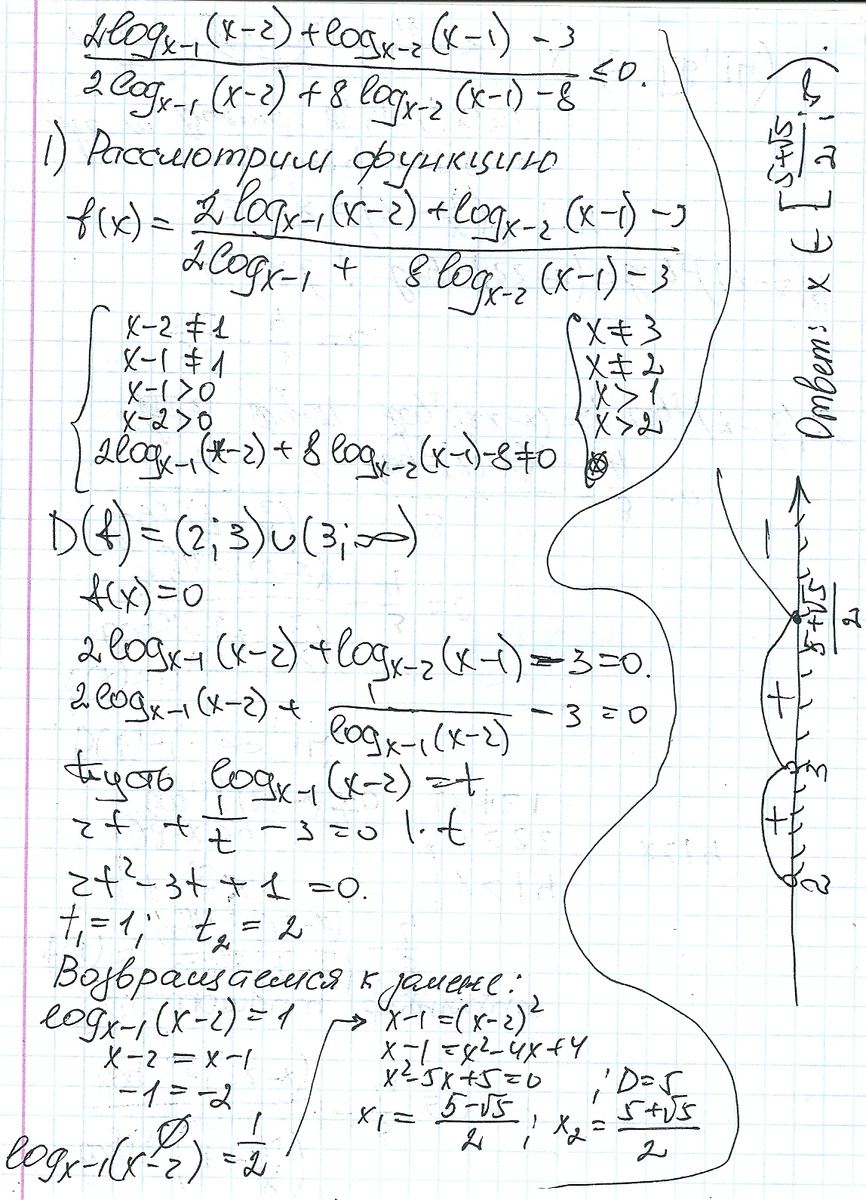 2log_{x-1}(x-2) + log_{x-2}(x-1) - 3
2log_{x-1}(x-2) + 8log_{x-2}(x-1) - 8 ≤ 0.
1) Рассмотрим функцию
f(x) = 2log_{x-1}(x-2) + log_{x-2}(x-1) - 3
2log_{x-1} + 8log_{x-2}(x-1) - 3
x-2 ≠ 1
x-1 ≠ 1
x-1 > 0
x-2 > 0
2log_{x-1}(x-2) + 8log_{x-2}(x-1) - 8 ≠ 0
x ≠ 3
x ≠ 2
x > 1
x > 2
D(f) = (2; 3) ∪ (3; ∞)
f(x) = 0
2log_{x-1}(x-2) + log_{x-2}(x-1) - 3 = 0.
2log_{x-1}(x-2) + 1/log_{x-1}(x-2) - 3 = 0
Пусть log_{x-1}(x-2) = t
2t + 1/t - 3 = 0 | · t
2t² - 3t + 1 = 0.
t₁ = 1; t₂ = 2
Возвращаемся к замене:
log_{x-1}(x-2) = 1
x-2 = x-1
-1 = -2
∅
log_{x-1}(x-2) = 1/2
→ x-1 = (x-2)²
x-1 = x² - 4x + 4
x² - 5x + 5 = 0 ; D = 5
x₁ = (5-√5)/2 ; x₂ = (5+√5)/2
2 + 3 + (5+√5)/2 -
Ответ: x ∈ [(5+√5)/2; ∞).